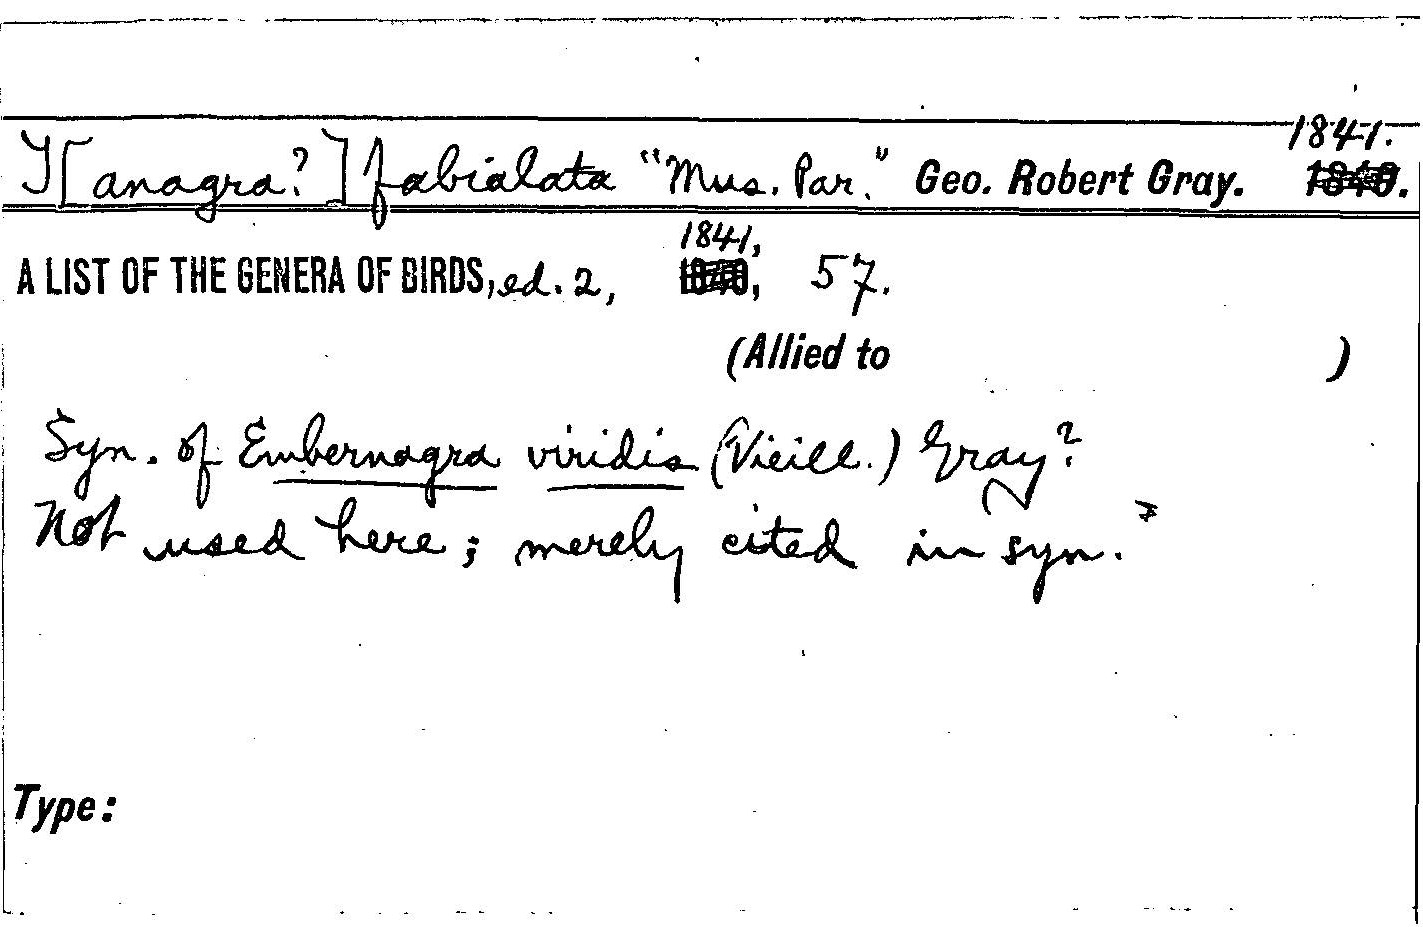 T[anagra?] fabialata "Mus. Par." Geo. Robert Gray. 1841.
A LIST OF THE GENERA OF BIRDS, ed. 2, 1841, 57.
(Allied to )
Syn. of Embernagra viridis (Vieill.) Gray?
Not used here; merely cited in syn.
Type: